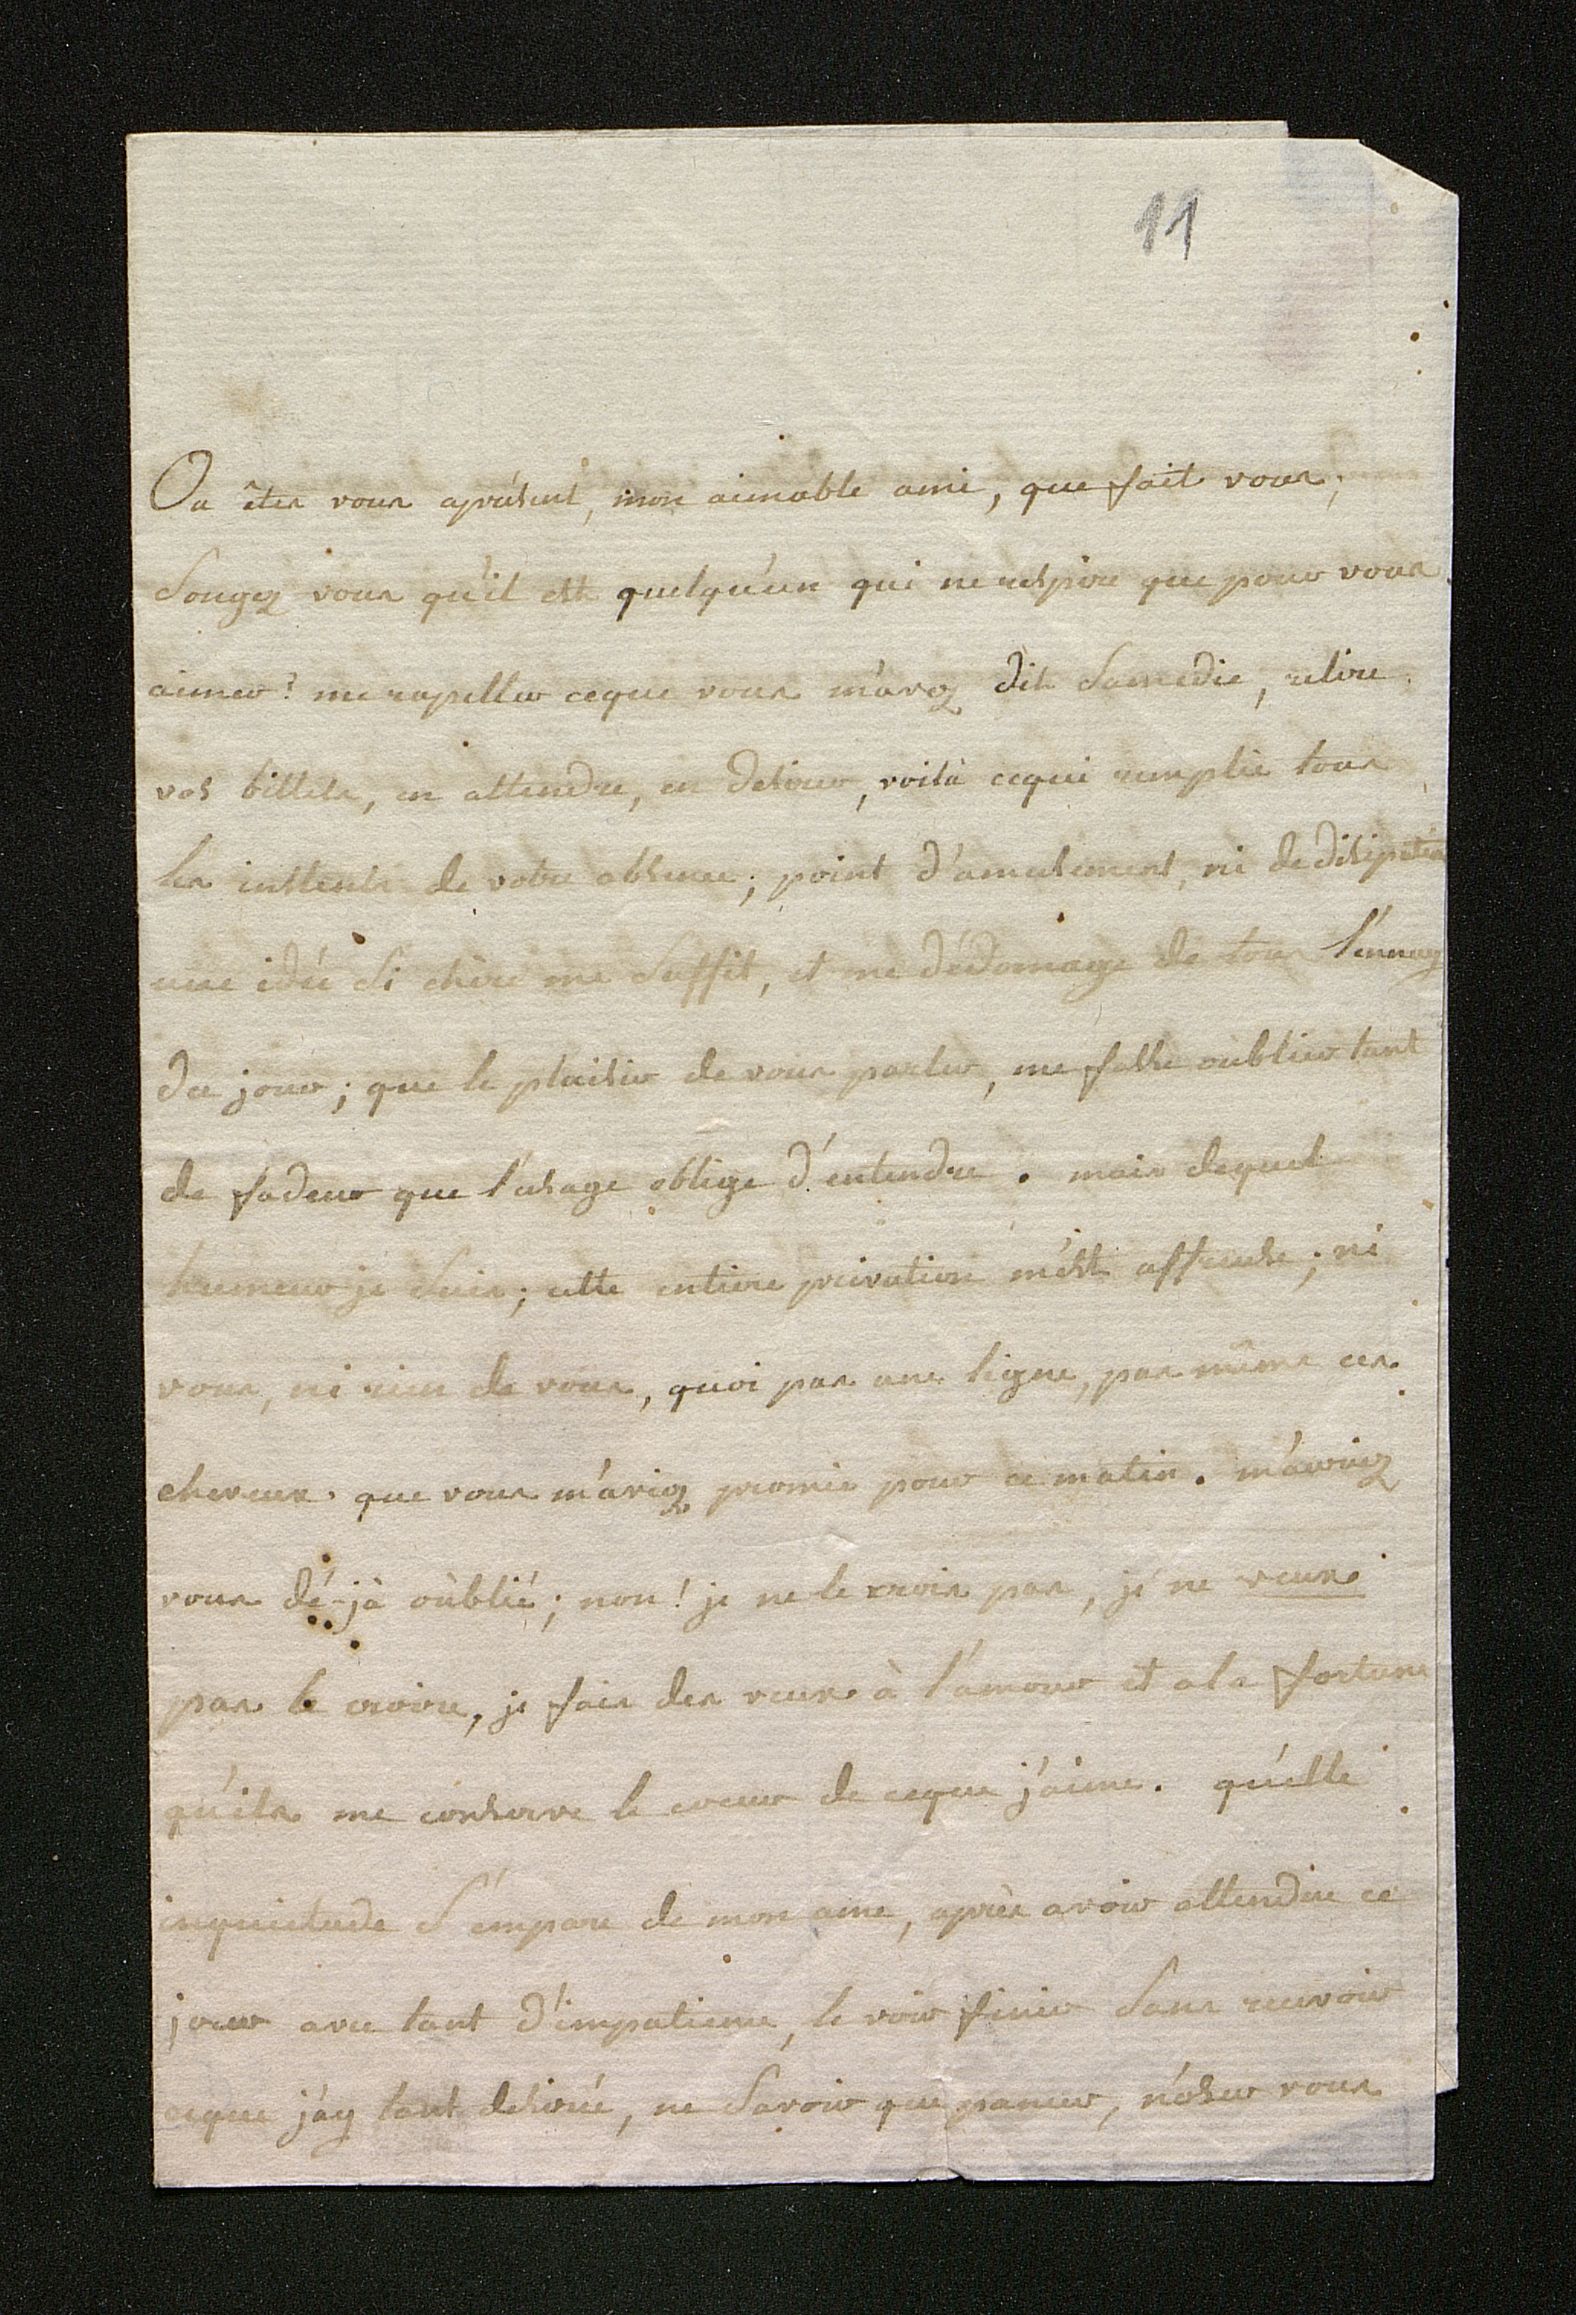 11
Ou êtes vous aprésent, mon aimable ami, que fait vous;
Songez vous qu'il est quelqu'un qui ne respire que pour vous
aimer? me rapeller ceque vous m'avez dit Samedie, relire
vos billets, en attendre, en desirer, voilà cequi remplie tous
les instents de votre absence; point d'amusement, ni de disipation
une idée si chère me suffit, et me dédomage de tous l'ennuy
du jour; que le plaisir de vous parler, me fasse oublier tant
de fadeur que l'usage oblige d'entendre. mais dequel
humeur je suis; cette entiere privation m'est affreuse; ni
vous, ni rien de vous, quoi pas une ligne, pas même ces
cheveux que vous m'aviez promis pour ce matin. m'auriez
vous dé-jà oùblié; non! je ne le crois pas, je ne veux
pas le croire, je fais des veux à l'amour et a la fortune
qu'ils me conserve le coeur de ceque j'aime. qu'elle
inquietude s'empare de mon ame, après avoir attendue ce
jour avec tant d'impatience, le voir finir sans recevoir
ceque j'ay tant desirée, ne savoir que penser, n'oser vous